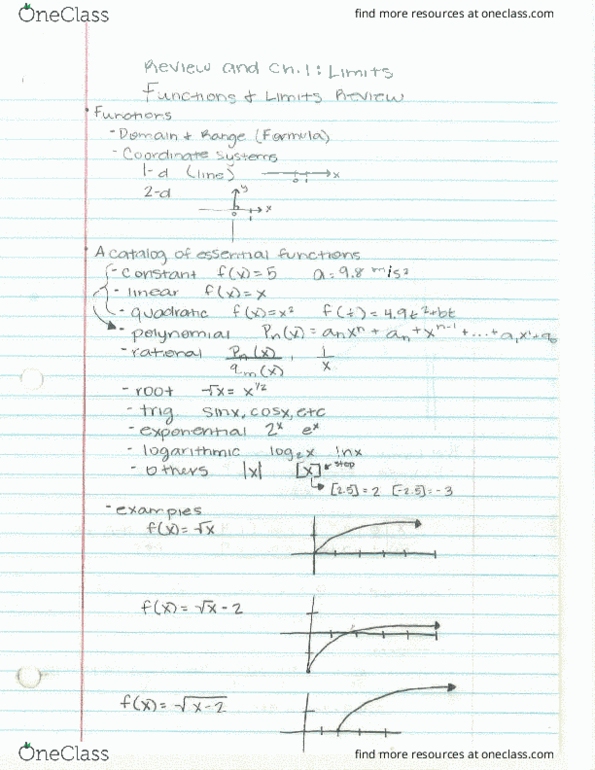 OneClass find more resources at oneclass.com
Review and Ch.1: Limits
Functions & Limits Review
• Functions
- Domain & Range (Formula)
- Coordinate Systems
1-d (line) 0 1 x
2-d y 0 1 x
• A catalog of essential functions
- constant f(x)=5 a=9.8 m/s²
- linear f(x)=x
- quadratic f(x)=x² f(t)=4.9t²+bt
- polynomial Pn(x)=anxⁿ + an+xⁿ⁻¹+...+a,x'+a₀
- rational Pn(x)/qm(x), 1/x
- root √x = x^1/2
- trig sinx, cosx, etc
- exponential 2ˣ eˣ
- logarithmic log₂x lnx
- others |x| [x] step
[2.5]=2 [-2.5]=-3
- examples
f(x)=√x
f(x)=√x-2
f(x)=√(x-2)
OneClass find more resources at oneclass.com